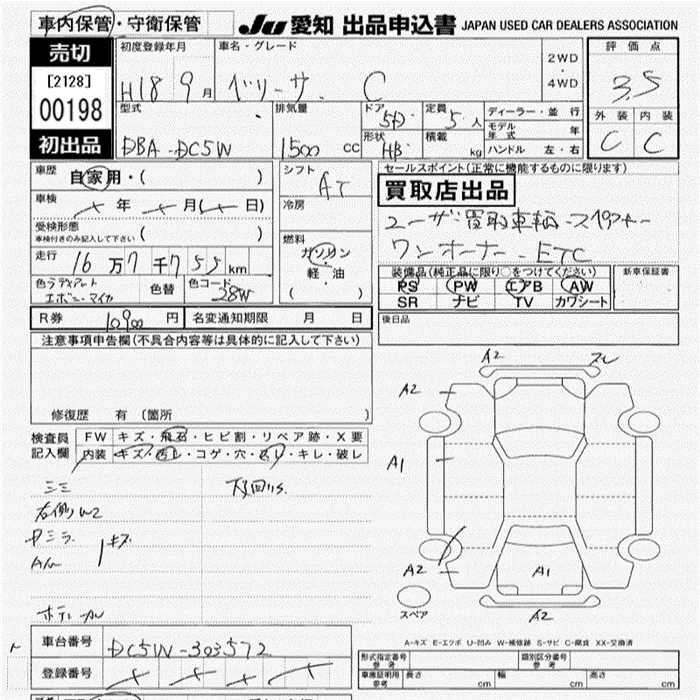 車内保管・守衛保管 JU 愛知 出品申込書 JAPAN USED CAR DEALERS ASSOCIATION
売切
[2128]
00198
初出品
初度登録年月 車名・グレード
H18 9月 ベリーサ C
2WD・4WD
評価点
3.5
外装 内装
C C
型式 排気量 ドア 定員
DBA-DC5W 1500 cc 5D 5人
形状 積載
HB kg
ディーラー・並行
モデル年式 年
ハンドル 左・右
車歴 自家用・( )
車検 年 月( 日)
受検形態
車検付きのみ記入して下さい ( )
走行 16万7千755km
色 ラディアント エボニーマイカ 色替 色コード 28W
シフト AT
冷房
燃料
ガソリン・軽油
( )
セールスポイント(正常に機能するものに限ります)
買取店出品
ユーザー買取車輌・スペアキー
ワンオーナー・ETC
装備品(純正品に限り○をつけてください) 新車保証書
PS PW エアB AW
SR ナビ TV カワシート
R券 10900円 名変通知期限 月 日
後日品
注意事項申告欄(不具合内容等は具体的に記入して下さい)
修復歴 有 (箇所 )
検査員記入欄
FW キズ・飛石・ヒビ割・リペア跡・X要
内装 キズ・汚レ・コゲ・穴・スレ・キレ・破レ
右側W2
キズ
A2
A2
A1
A2
A1
A2
スペア
A-キズ E-エクボ U-凹み W-補修跡 S-サビ C-腐食 XX-交換済
車台番号 DC5W-303572
登録番号
形式指定番号 参考 類別区分番号 参考
車庫証明用 参考 長さ cm 幅 cm 高さ cm